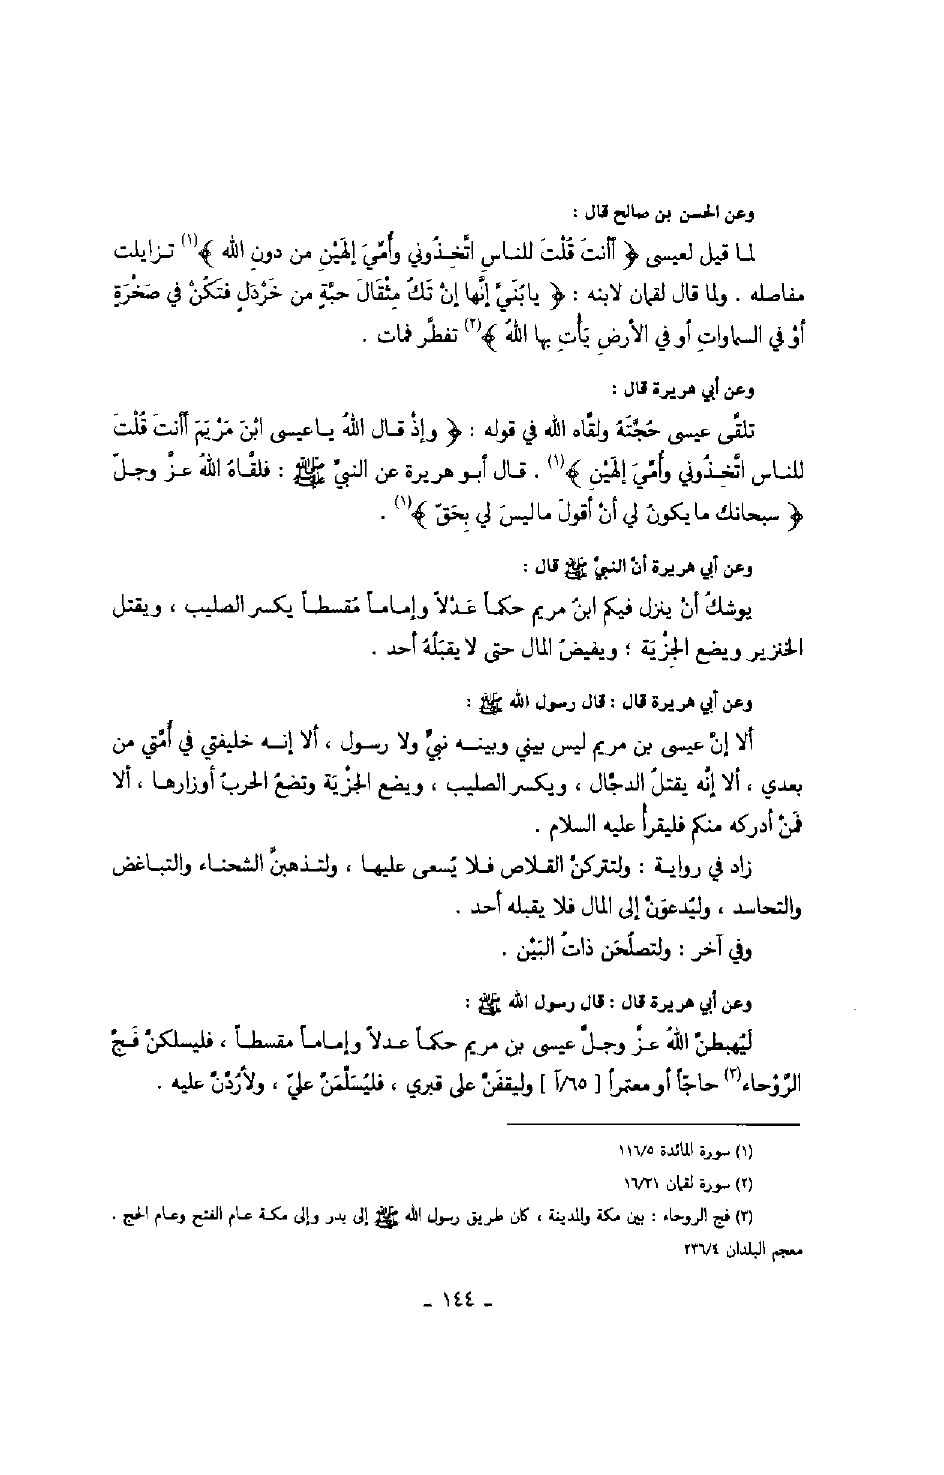 وعن الحسن بن صالح قال :
لما قيل لعيسى ﴿ أأنتَ قُلْتَ للناسِ اتَّخِذُوني وأُمِّيَ إلهَيْنِ من دونِ الله ﴾(١) تزايلت
مفاصله . ولما قال لقمان لابنه : ﴿ يابُنَيَّ إنَّها إنْ تَكُ مِثْقَالَ حبَّةٍ من خَرْدَلٍ فتَكُنْ في صَخْرَةٍ
أوْ في السماواتِ أو في الأرضِ يَأتِ بها اللهُ ﴾(٢) تفطَّر فمات .
وعن أبي هريرة قال :
تلقَّى عيسى حُجَّتَهُ ولقَّاه الله في قوله : ﴿ وإذْ قال اللهُ ياعيسى ابْنَ مَرْيَمَ أأنتَ قُلْتَ
للناس اتَّخِذُوني وأُمِّيَ إلهَيْنِ ﴾(١) . قال أبو هريرة عن النبيِّ ﷺ : فلقَّاهُ اللهُ عزَّ وجلّ
﴿ سبحانك ما يكونُ لي أنْ أقولَ ماليسَ لي بِحَقّ ﴾(١) .
وعن أبي هريرة أنّ النبيَّ ﷺ قال :
يوشكُ أنْ ينزل فيكم ابنُ مريم حكماً عَدْلاً وإماماً مُقسطاً يكسر الصليب ، ويقتل
الخنزير ويضع الجِزْيَة ؛ ويفيضُ المال حتى لا يقبَلُهُ أحد .
وعن أبي هريرة قال : قال رسول الله ﷺ :
ألا إنَّ عيسى بن مريم ليس بيني وبينه نبيٌّ ولا رسول ، ألا إنه خليفتي في أُمَّتي من
بعدي ، ألا إنَّه يقتلُ الدجَّال ، ويكسر الصليب ، ويضع الجِزْيَة وتضعُ الحربُ أوزارها ، ألا
فَمَنْ أدركه منكم فليقرأ عليه السلام .
زاد في رواية : ولتتركنّ القلاص فلا يُسعى عليها ، ولتذهبنَّ الشحناء والتباغض
والتحاسد ، وليُدعوَنّ إلى المال فلا يقبله أحد .
وفي آخر : ولتصلُحَن ذاتُ البَيْن .
وعن أبي هريرة قال : قال رسول الله ﷺ :
لَيُهبطنَّ اللهُ عزَّ وجلَّ عيسى بن مريم حكماً عدلاً وإماماً مقسطاً ، فليسلكنّ فَجَّ
الرَّوْحاء(٣) حاجّاً أو معتمراً [ ٦٥/أ ] وليقفَنّ على قبري ، فليُسَلِّمَنّ عليّ ، ولأَرُدَّنّ عليه .
(١) سورة المائدة ١١٦/٥
(٢) سورة لقمان ١٦/٣١
(٣) فج الروحاء : بين مكة والمدينة ، كان طريق رسول الله ﷺ إلى بدر وإلى مكة عام الفتح وعام الحج .
معجم البلدان ٢٣٦/٤
- ١٤٤ -